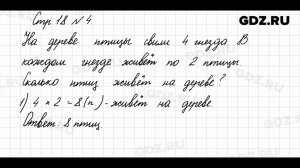 GDZ.RU
Стр. 18 № 4.
На дереве птицы свили 4 гнезда. В
каждом гнезде живёт по 2 птицы.
Сколько птиц живёт на дереве?
1) 4 × 2 = 8 (п.) - живёт на дереве.
Ответ: 8 птиц.
GDZ.RU